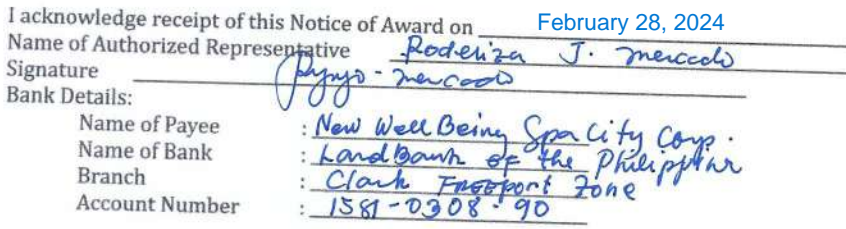 I acknowledge receipt of this Notice of Award on February 28, 2024
Name of Authorized Representative Roderiza J. Mercado
Signature
Bank Details:
Name of Payee : New Well Being Spa City Corp.
Name of Bank : LandBank of the Philippines
Branch : Clark Freeport Zone
Account Number : 1581-0308-90